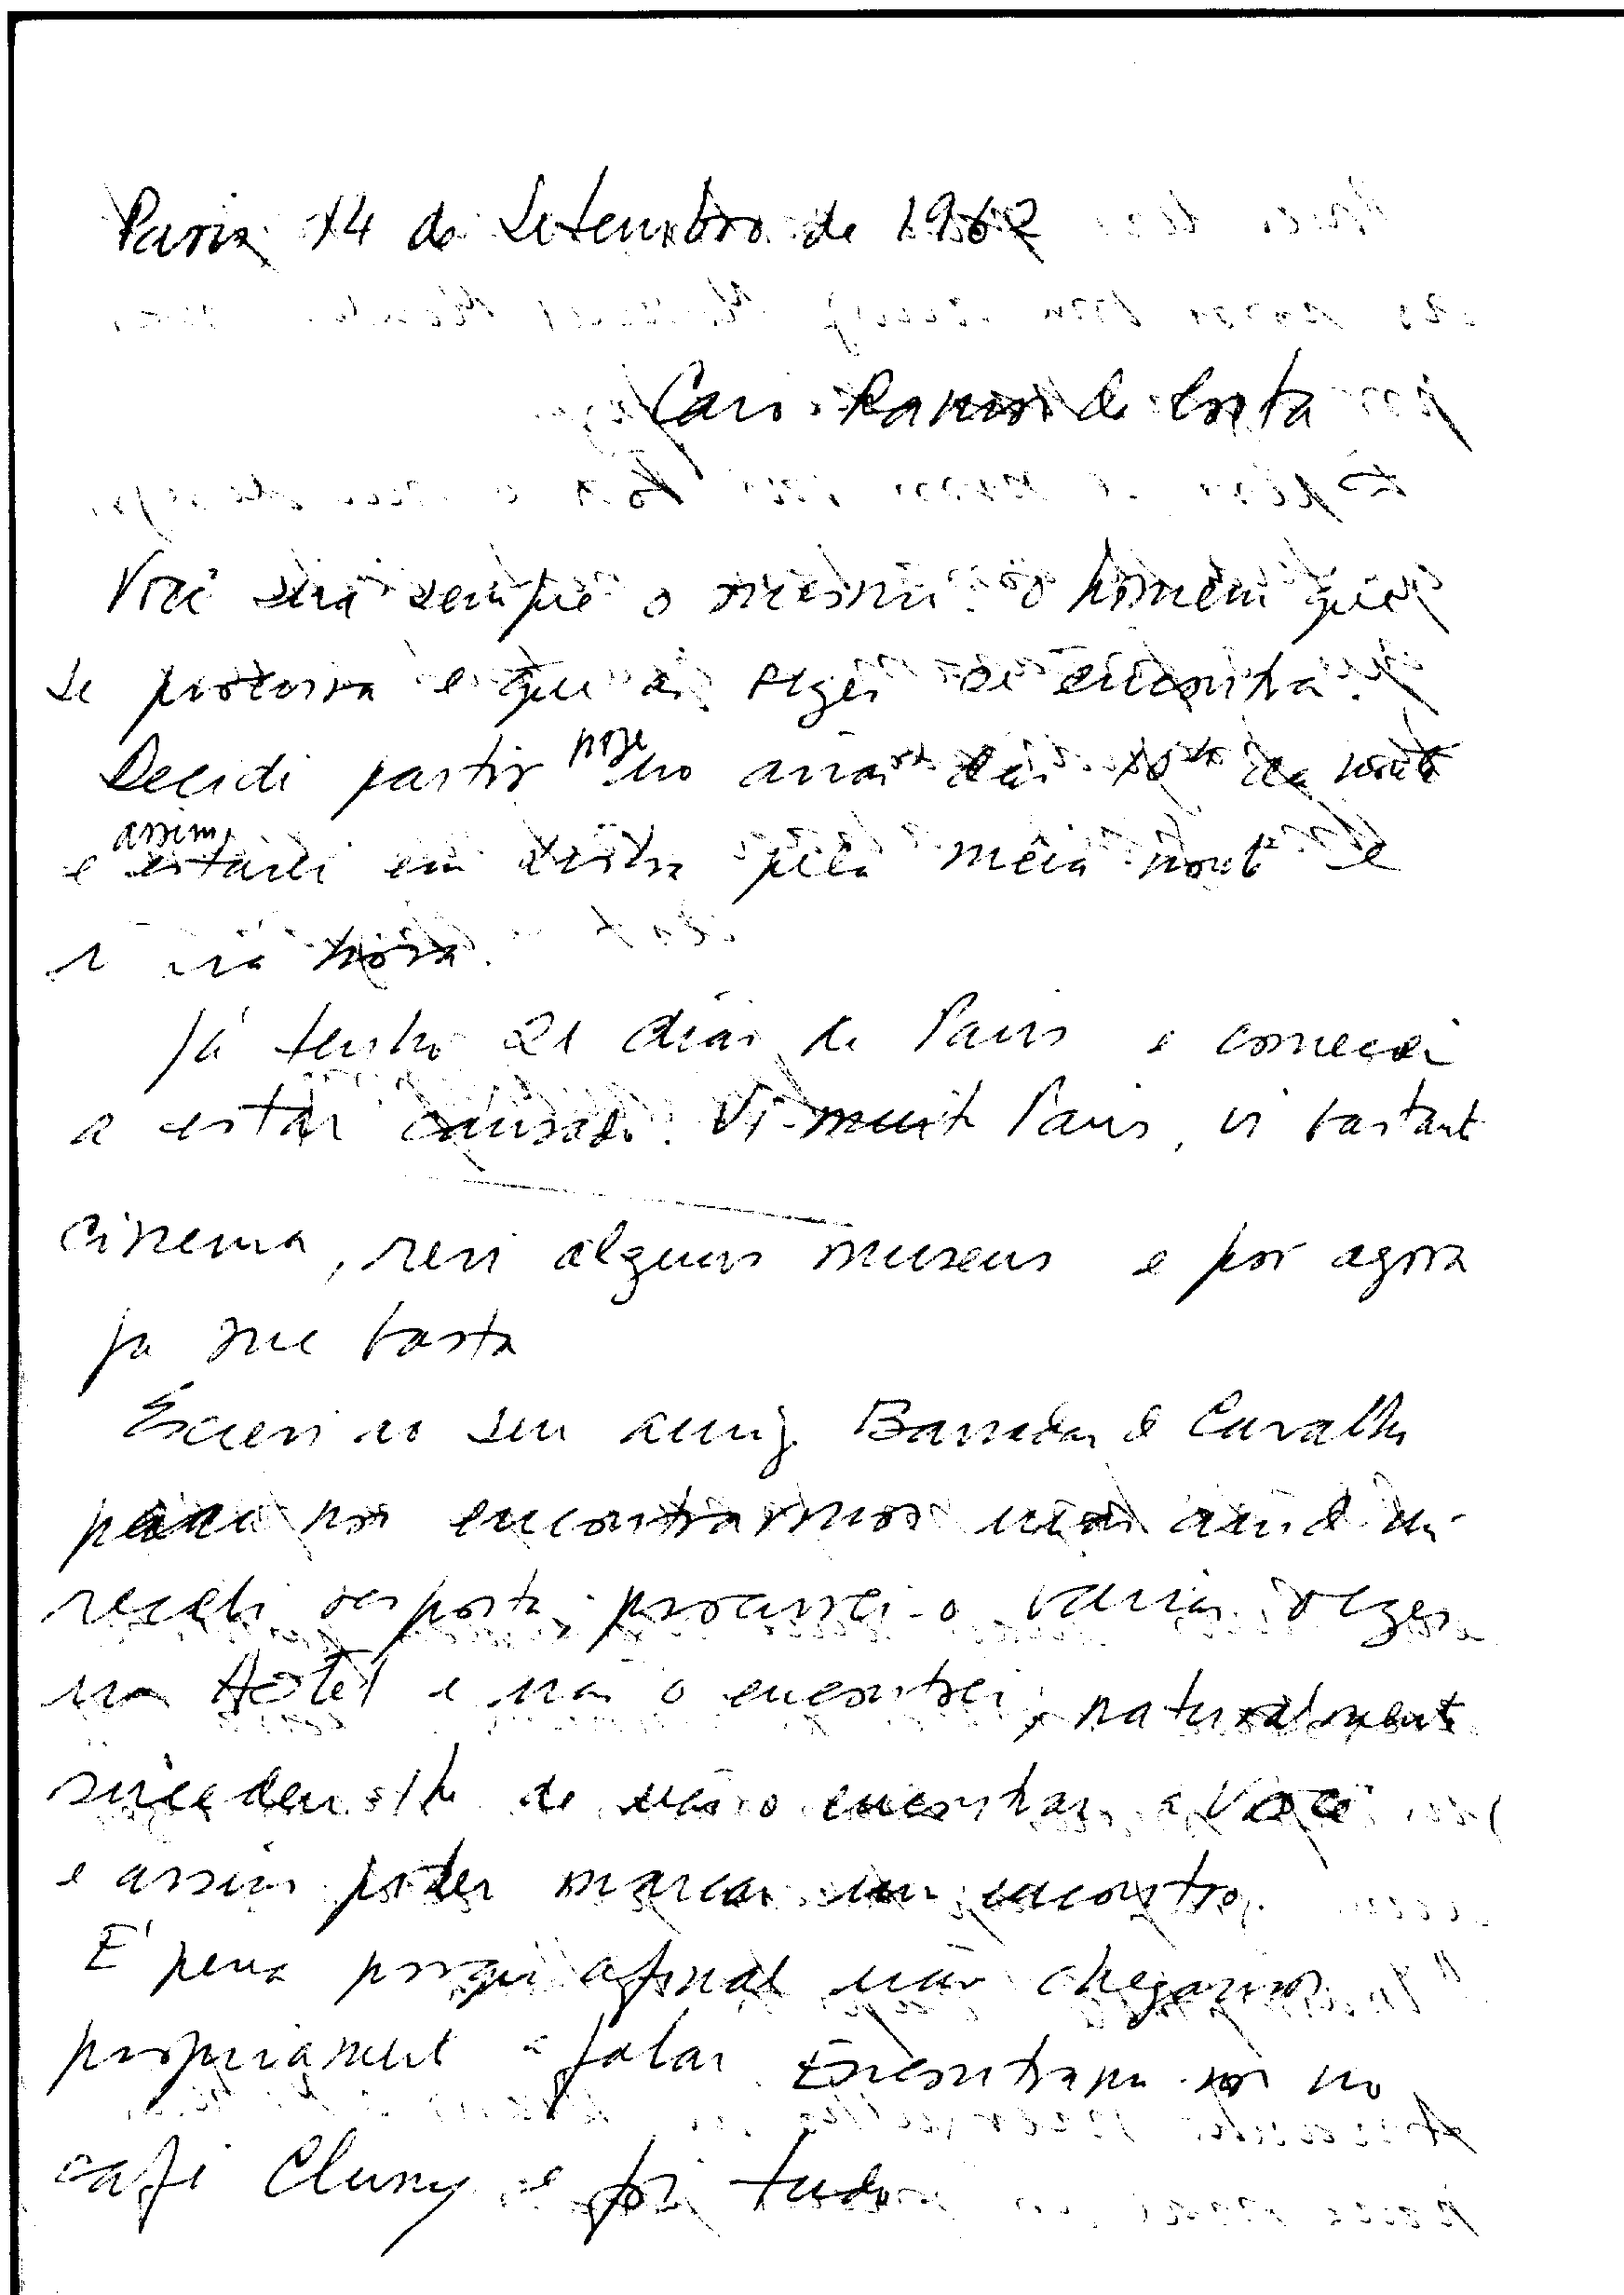 Paris 14 de Setembro de 1962
Caro Ramos da Costa
Você será sempre o mesmo: o homem que
se procura e que às vezes se encontra.
Decidi partir hoje no avião das da noite
e assim estarei em Lisboa pela meia noite e
hora.
Já tenho 21 dias de Paris e comecei
a estar cansado. Vi muito Paris, vi bastante
cinema, revi alguns museus e por agora
já me basta
Escrevi ao seu amigo Barradas de Carvalho
para nos encontrarmos mas ainda não
recebi resposta, procurei-o várias vezes
no Hotel e não o encontrei, naturalmente
sucedeu-lhe de não o encontrar a Você
e assim poder marcar um encontro.
É pena porque afinal não chegámos
propriamente a falar. Encontramo-nos no
café Cluny e foi tudo